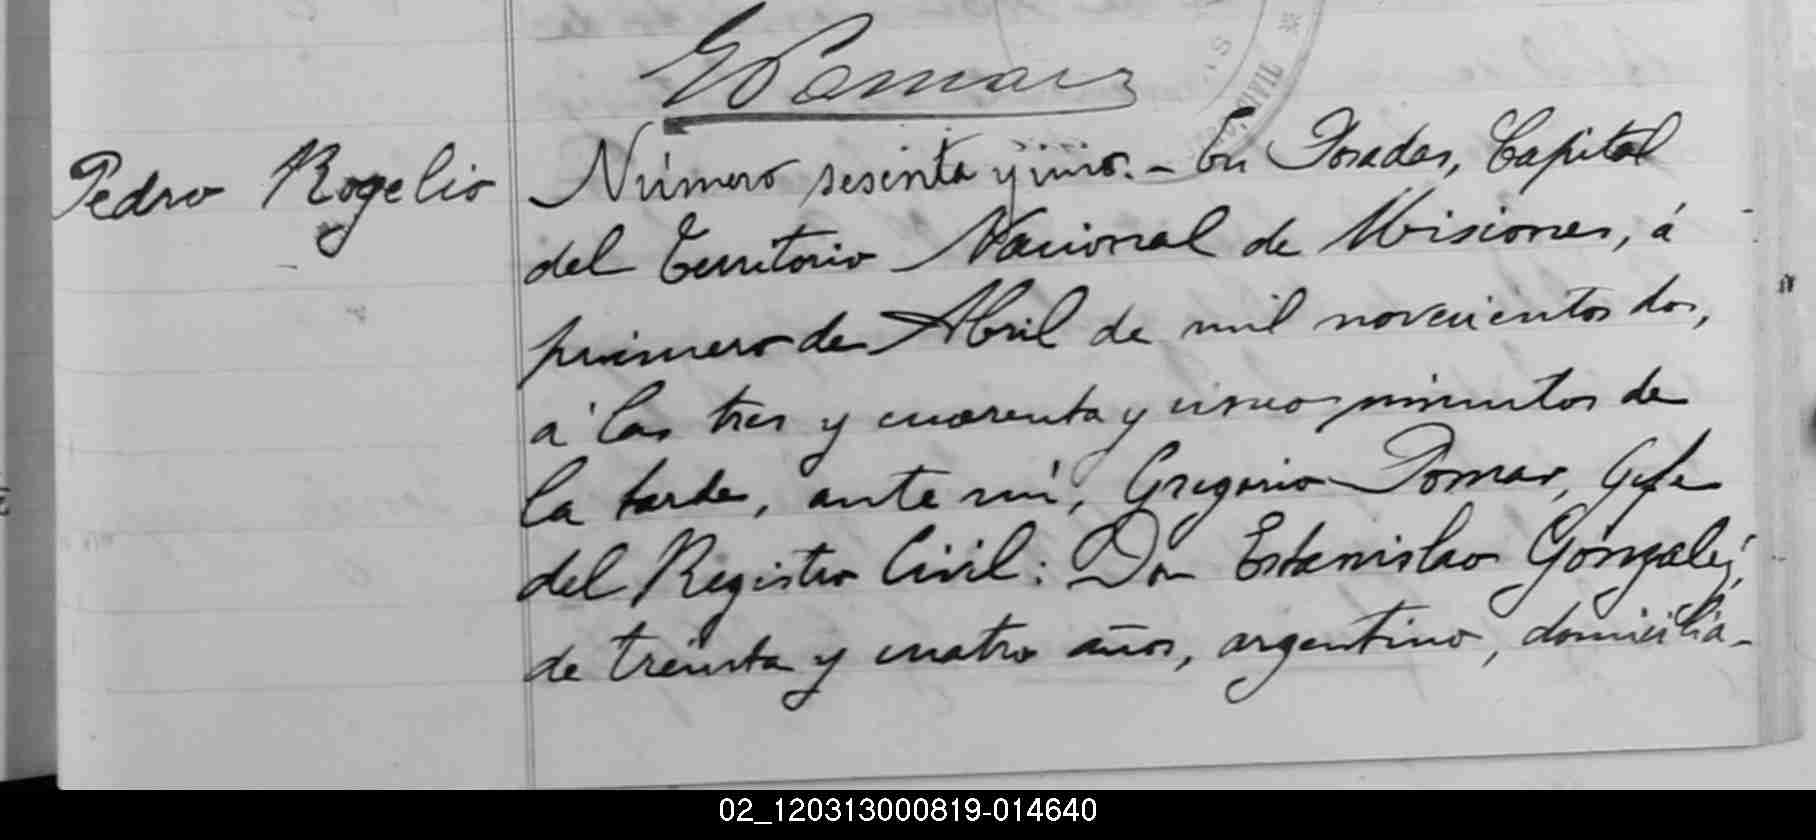 GPomar
CIVIL
Pedro Rogelio
Número sesenta y uno. - En Posadas, Capital
del Territorio Nacional de Misiones, á
primero de Abril de mil novecientos dos,
á las tres y cuarenta y cinco minutos de
la tarde, ante mí, Gregorio Pomar, Gefe
del Registro Civil: Don Estanislao González,
de treinta y cuatro años, argentino, domicilia-
02_120313000819-014640